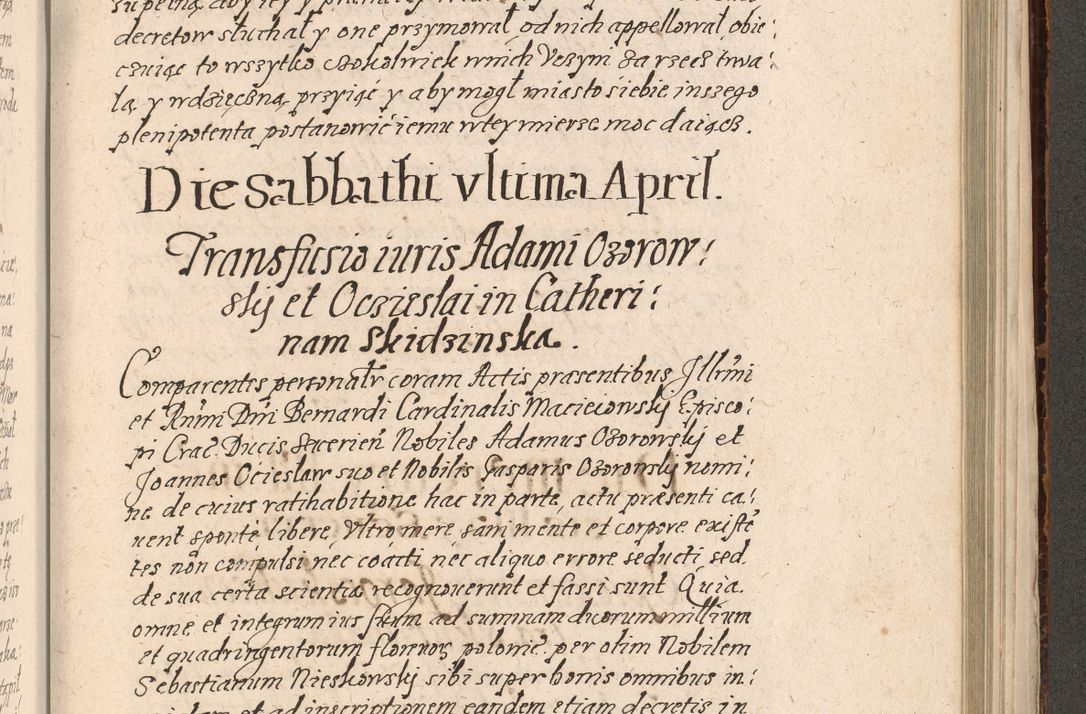 decretow słuchał y one przymował od nich appellował, obie:
czuiąc to wszytko czokolwiek wnich Vczyni za rzecz trwa:
łą, y wdzięczną, przyiąć y aby mogł miasto siebie inszego
plenipotenta postanowić iemu wtey mierze moc daiącz.
Die Sabbathi vltima April.
Transfusio iuris Adami Ozorow:
skij et Oczieslai in Catheri:
nam Skidzinska.
Comparentes personalr coram Actis præsentibus Illrmi
et Rnmi Dni Bernardi Cardinalis Macieiowskij Episco:
pi Crac. Ducis Seuerien Nobiles Adamus Ozorowskij et
Joannes Ociesław suo et Nobilis Gasparis Ozorowskij nomi:
ne de cuius ratihabitione hac in parte, actu præsenti ca:
uent sponte libere Vltro mere sani mente et corpore existe
tes non compulsi nec coacti nec aliquo errore seducti, sed
de sua certa scientia recognouerunt et fassi sunt Quia
omne et integrum ius suum ad summam duorum millium
et quadringentorum florenor polonic per olim Nobilem
Sebastianum Nieskowskij sibi super bonis omnibus in:
et ad inscriptionem eandem etiam decretis in